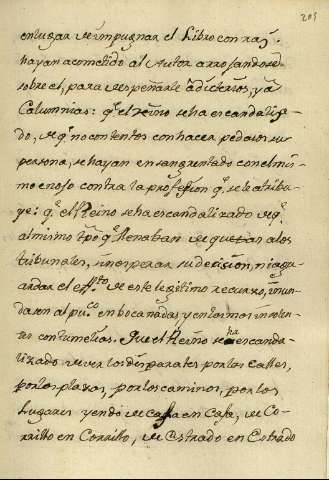 201
en lugar de impugnar el Libro con raz.s
hayan acometido al Autor arrojandose
sobre el, para despeñarle a dicterios, y a
Calumnias: q.e el Reino se ha escandaliza
do, de q.e no contentos con hacer pedazos su
persona, se hayan ensangrentado con el mis
mo enojo contra la profession q.e se le atribu
ye: q.e el Reino se ha escandalizado de q.e
al mismo tpô q.e llenaban de quejas a los
tribunales, sin esperar su decision, ni agu
ardar el eff.to de este legitimo recurso, inun
dasen al pu.co en bocanadas y en los mas insolen
tes contumelias. Que el Reino se ha escanda
lizado de ver los disparates por las Calles,
por las plazas, por los caminos, por los
Lugares yendo de Casa en Casa, de Co-
rrillo en Corrillo, de Estrado en Estrado